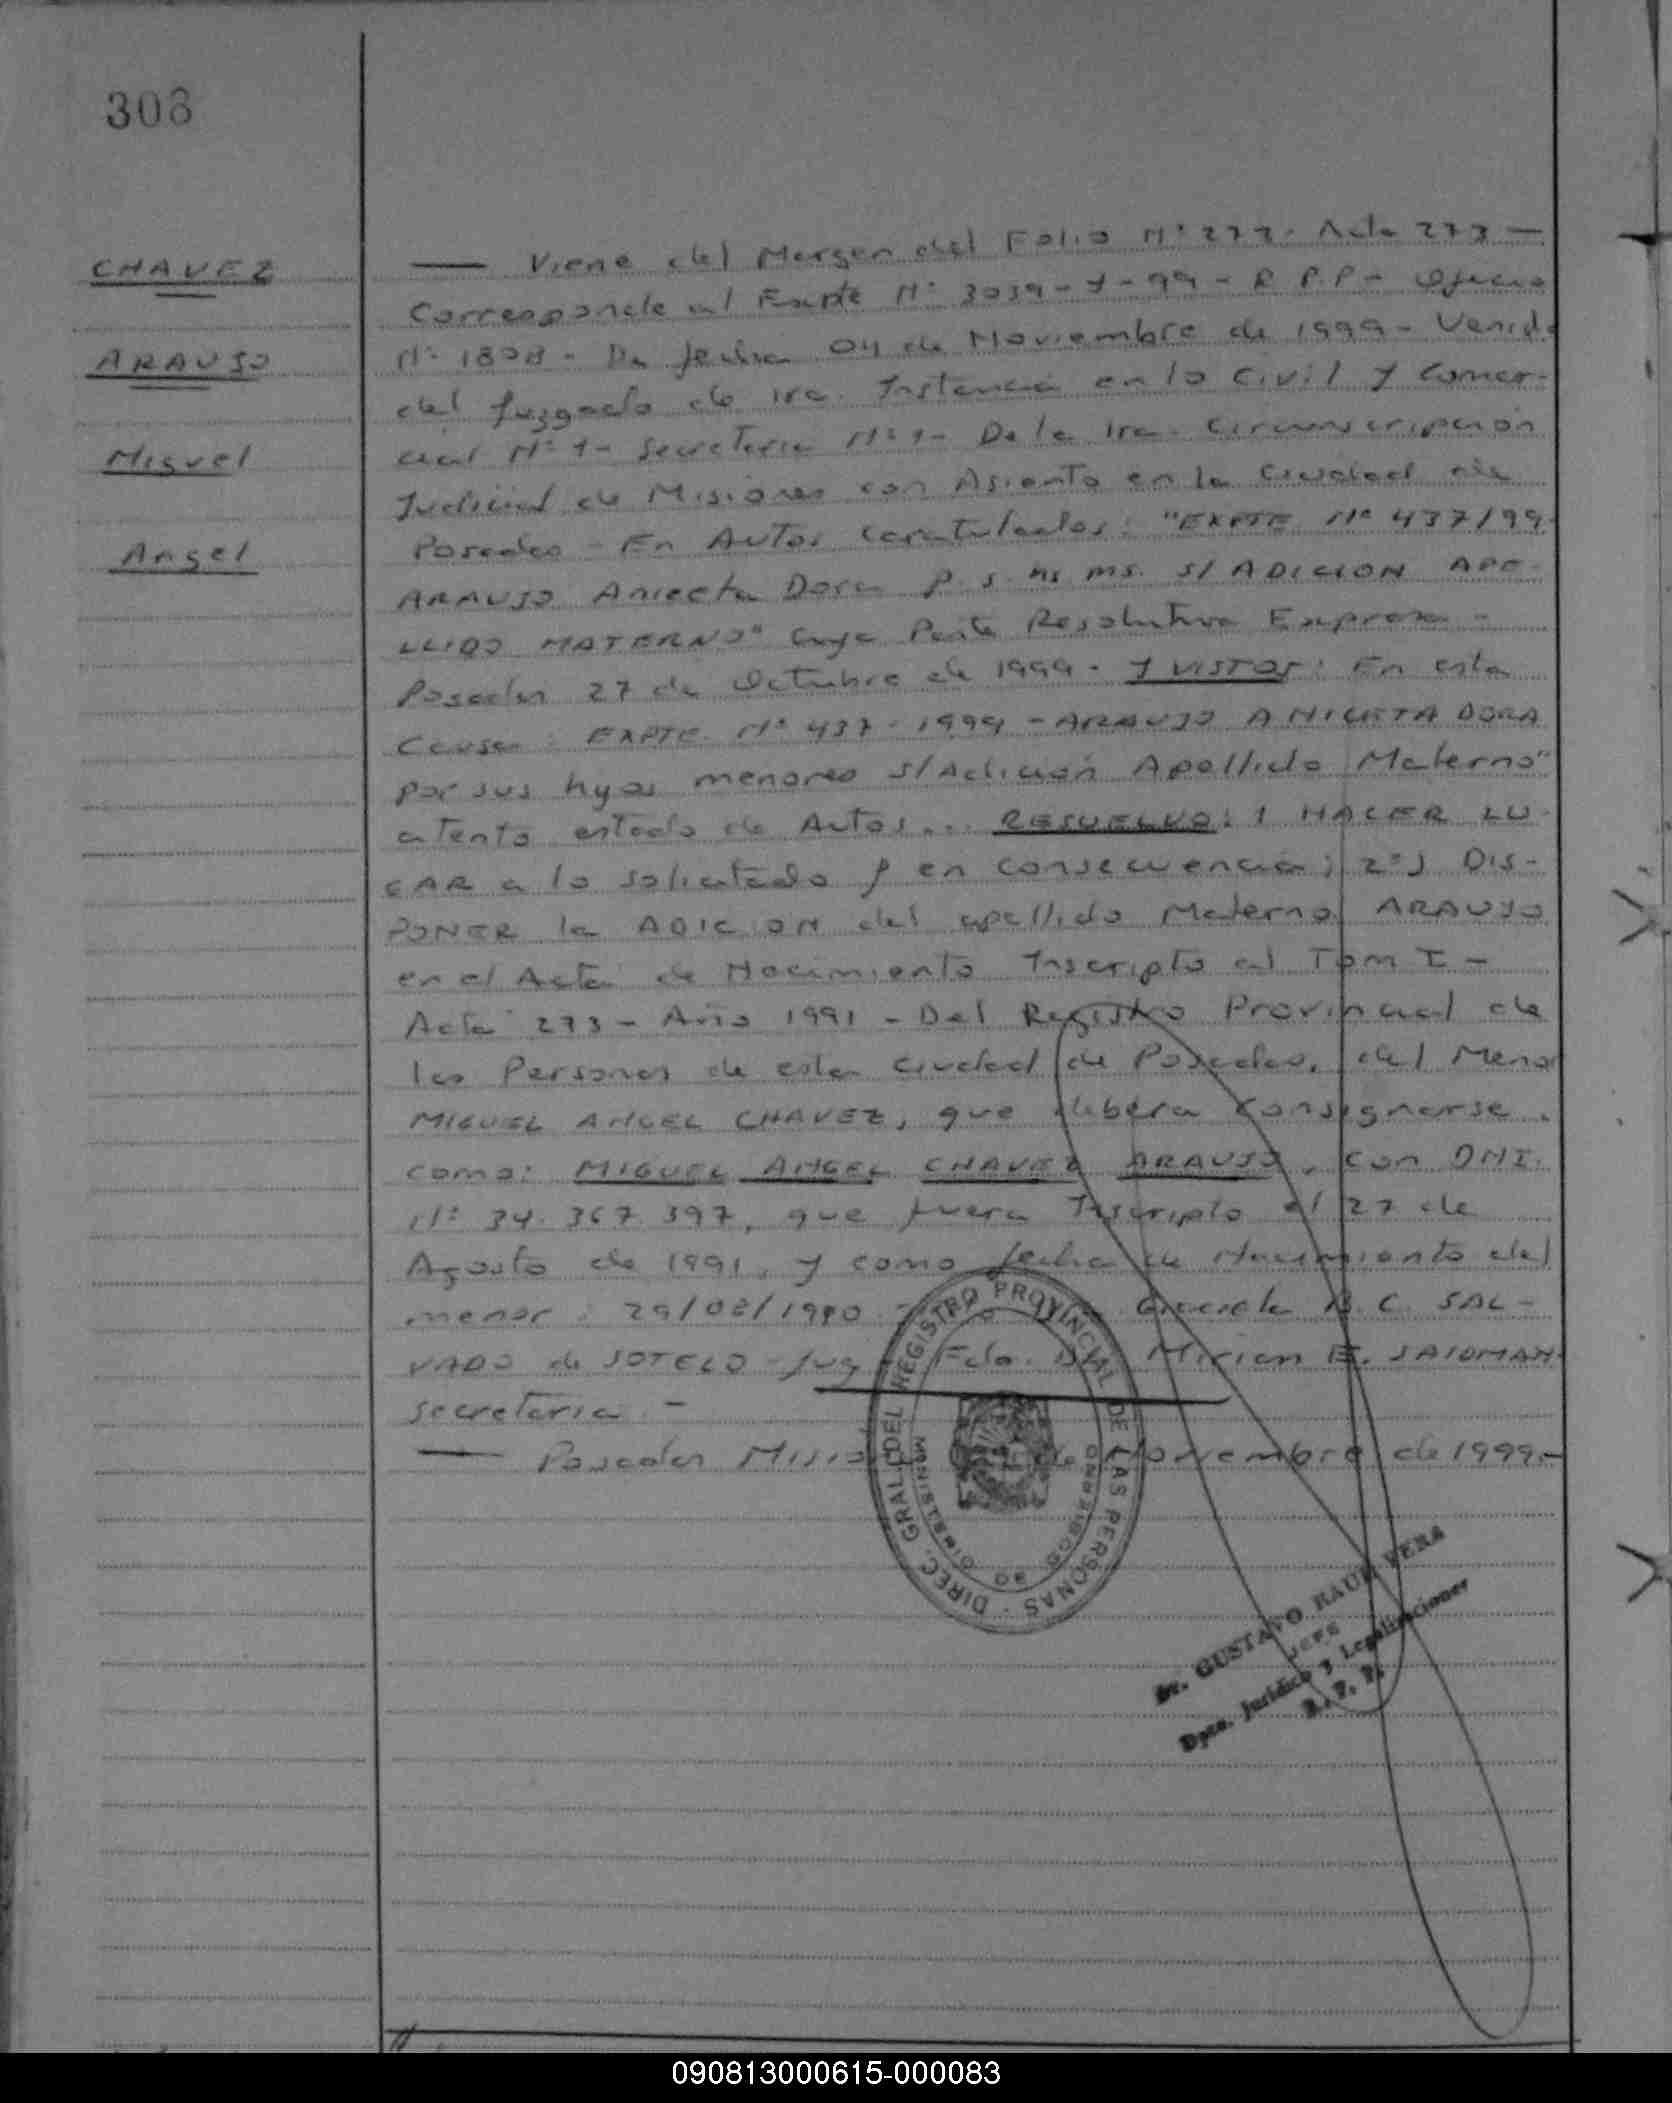 308
CHAVEZ
ARAUJO
Miguel
Angel
— Viene del Margen del Folio Nº 277. Acta 273 —
Corresponde al Expte Nº 3039-Y-99 - R.P.P - Oficio
Nº 1808 - De fecha 04 de Noviembre de 1999 - Venido
del Juzgado de 1ra. Instancia en lo Civil y Comer-
cial Nº 1 - Secretaria Nº 1 - De la 1ra. Circunscripción
Judicial de Misiones con Asiento en la Ciudad de
Posadas - En Autos Caratulados: "EXPTE Nº 437/99
ARAUJO Aniceta Dora p. s. hs ms. s/ ADICION APE-
LLIDO MATERNO" Cuya Parte Resolutiva Expresa -
Posadas 27 de Octubre de 1999. Y VISTOS: En esta
Causa: EXPTE. Nº 437-1999 - ARAUJO ANICETA DORA
por sus hijos menores s/Adición Apellido Materno"
atento estado de Autos... RESUELVO: 1 HACER LU-
GAR a lo solicitado y en consecuencia; 2º) DIS-
PONER la ADICION del apellido Materno ARAUJO
en el Acta de Nacimiento Inscripto al Tom I -
Acta 273 - Año 1991 - Del Registro Provincial de
las Personas de esta Ciudad de Posadas, del Menor
MIGUEL ANGEL CHAVEZ, que debera consignarse
como: MIGUEL ANGEL CHAVEZ ARAUJO, con DNI.
Nº 34.367.397, que fuera Inscripto el 27 de
Agosto de 1991, y como fecha de Nacimiento del
menor: 29/08/1990. Graciela B. C. SAL-
VADO de SOTELO - Juez Fdo. Dra Mirian E. SAIDMAN
secretaria. -
— Posadas Misio de Noviembre de 1999.-
DIREC. GRAL. DEL REGISTRO PROVINCIAL DE LAS PERSONAS
MINISTERIO DE GOBIERNO
Dr. GUSTAVO RAUL VERA
JEFE
Dpto. Jurídico y Legalizaciones
R. P. P.
090813000615-000083